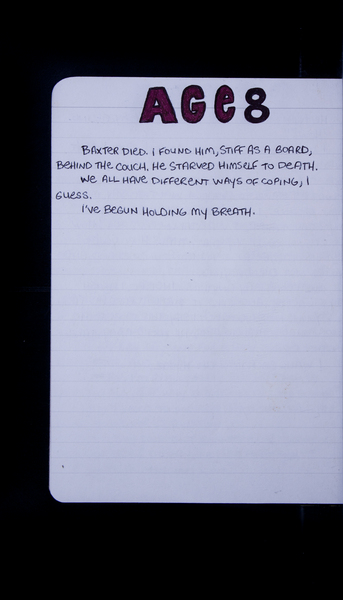 AGe 8
BAXTER DIED. I FOUND HIM, STIFF AS A BOARD,
BEHIND THE COUCH. HE STARVED HIMSELF TO DEATH.
WE ALL HAVE DIFFERENT WAYS OF COPING, I
GUESS.
I'VE BEGUN HOLDING MY BREATH.